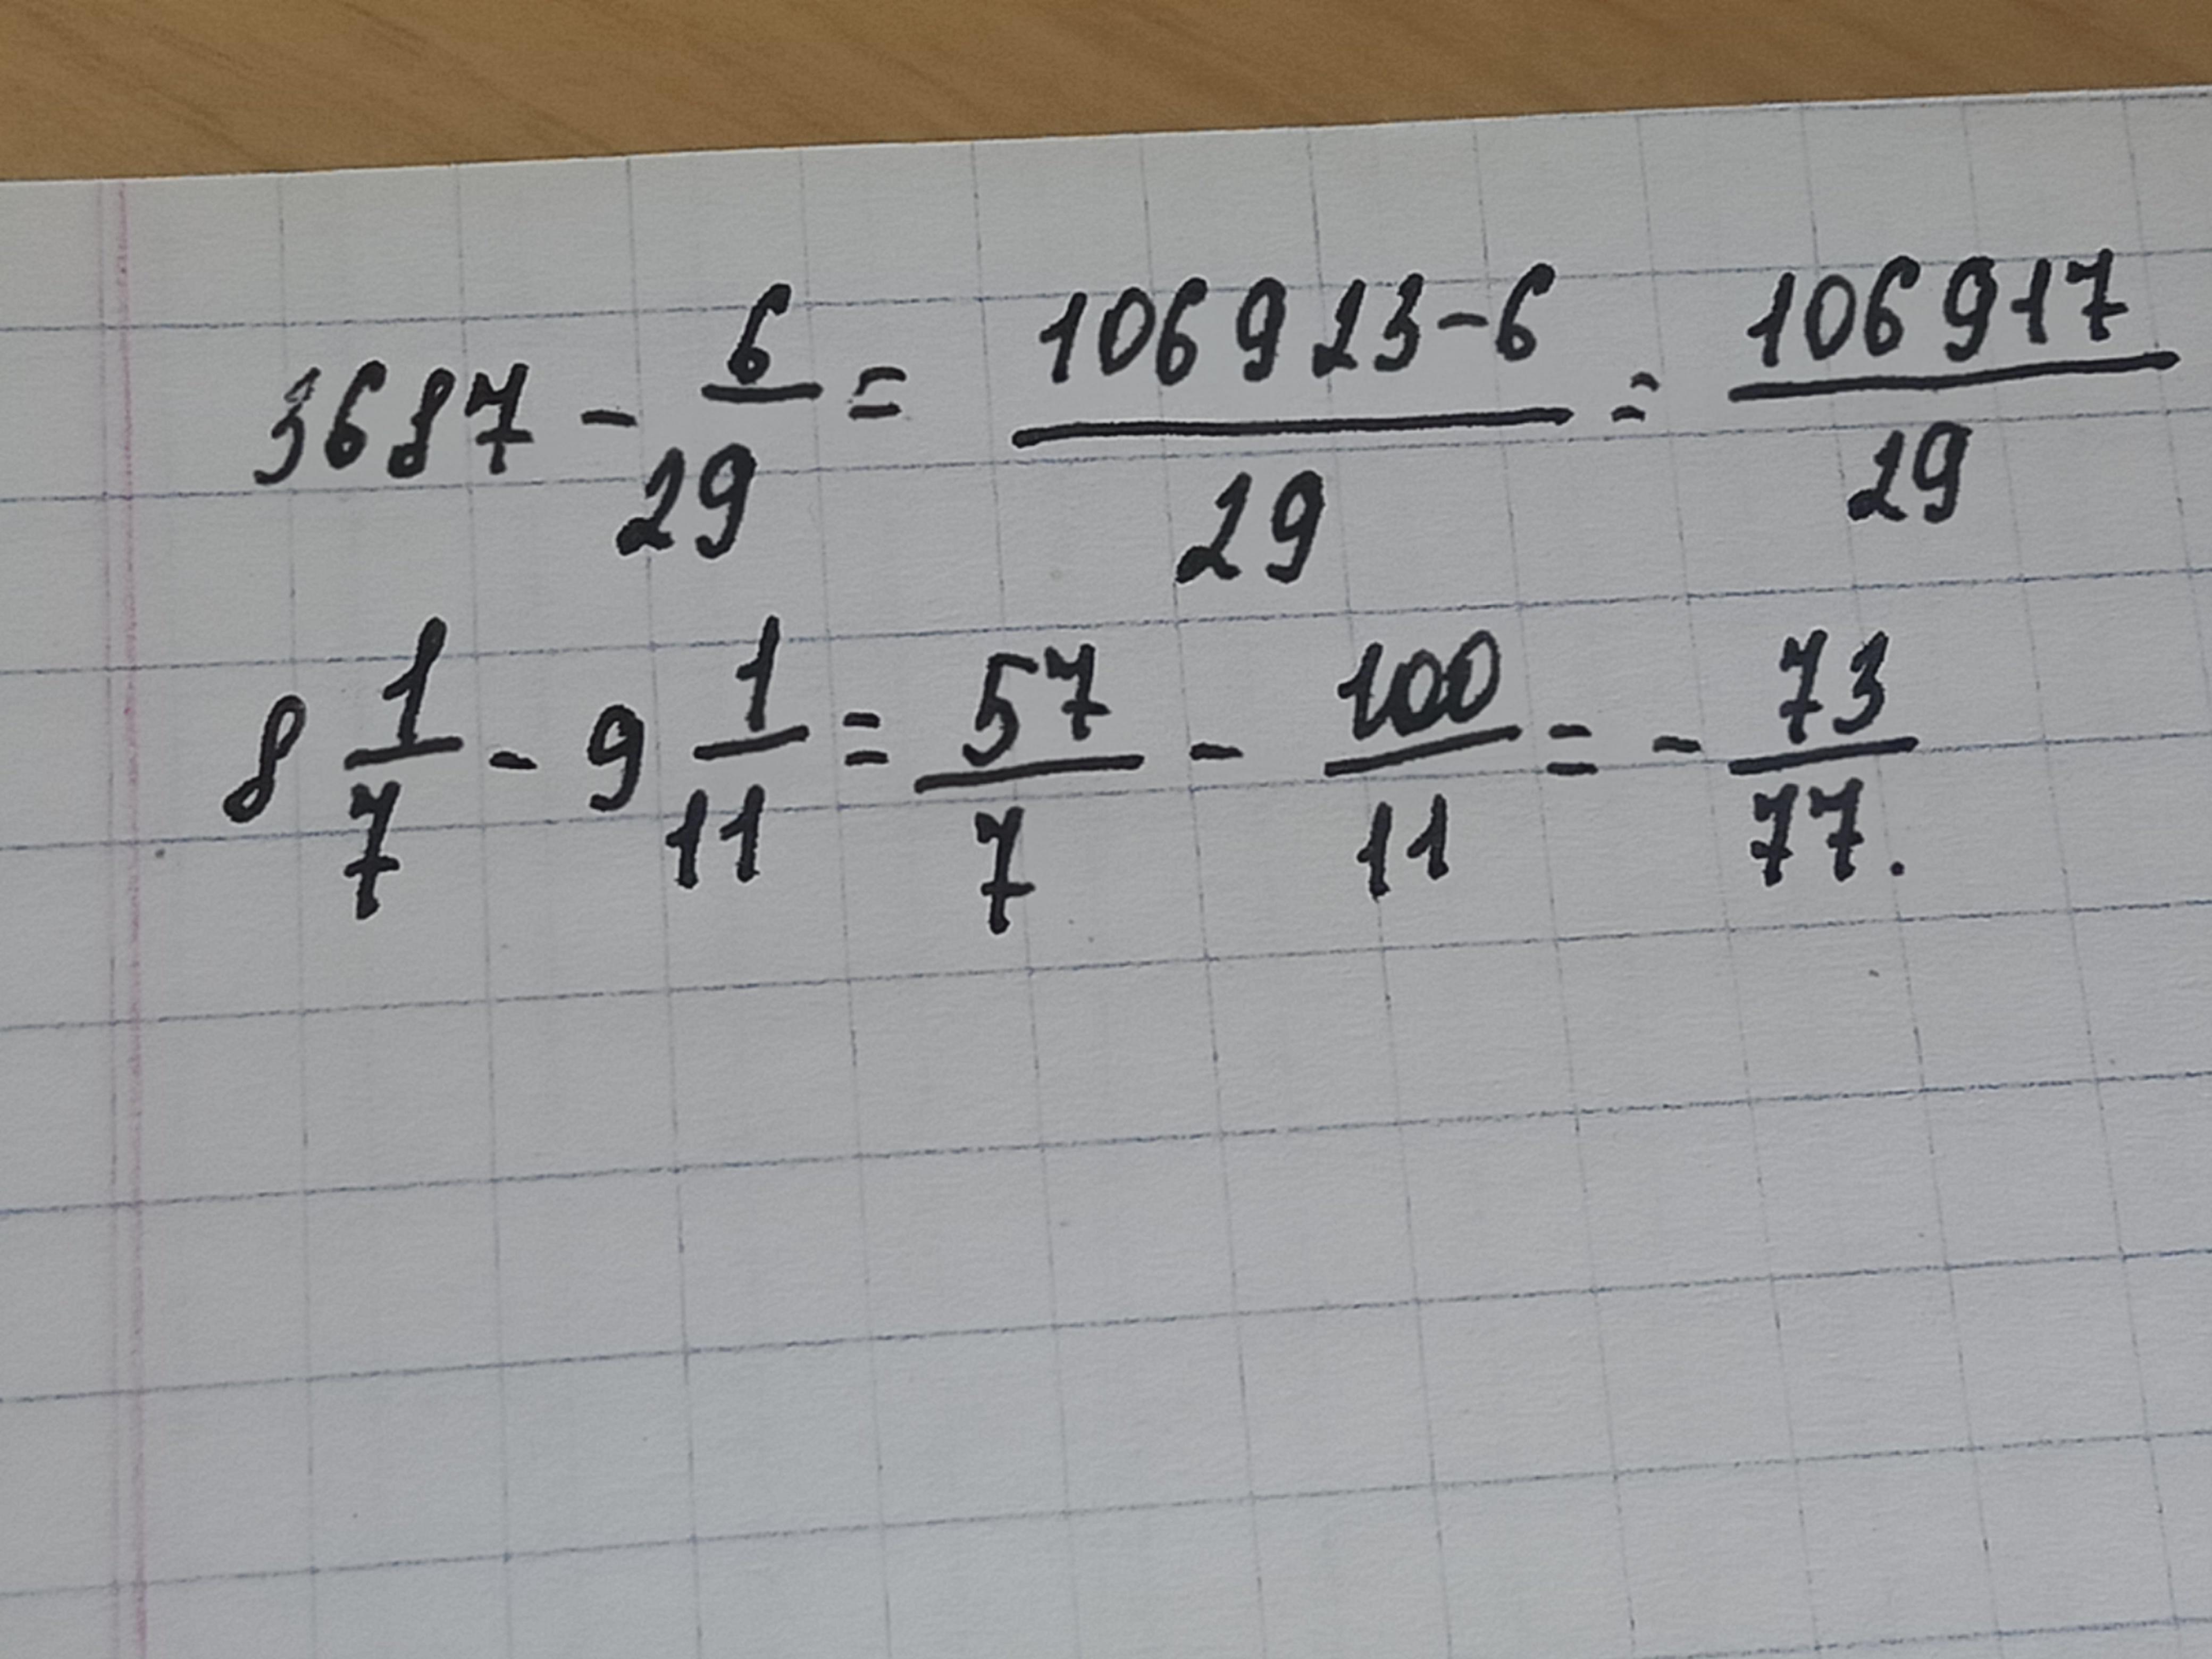 3687 - 6/29 = (106923-6)/29 = 106917/29
8 1/7 - 9 1/11 = 57/7 - 100/11 = - 73/77.